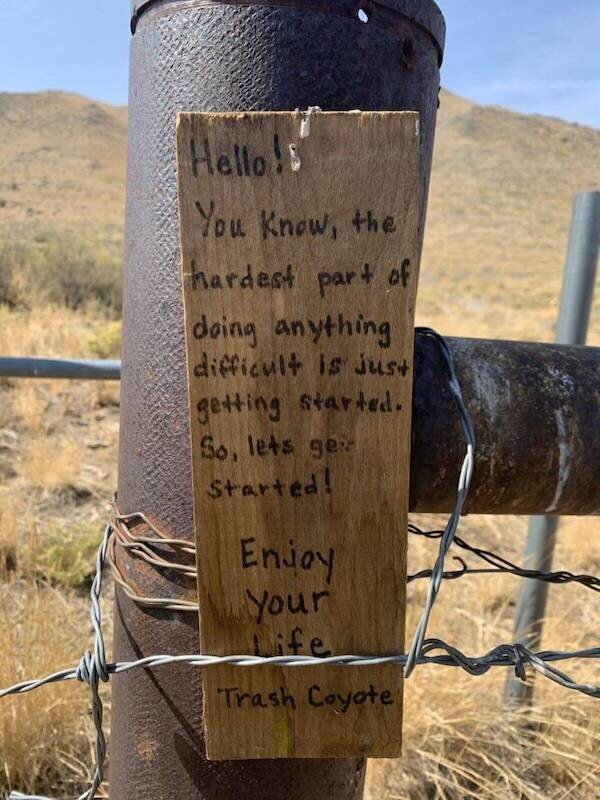 Hello!
You Know, the
hardest part of
doing anything
difficult is just
getting started.
So, lets get
started!
Enjoy
Your
Life
Trash Coyote